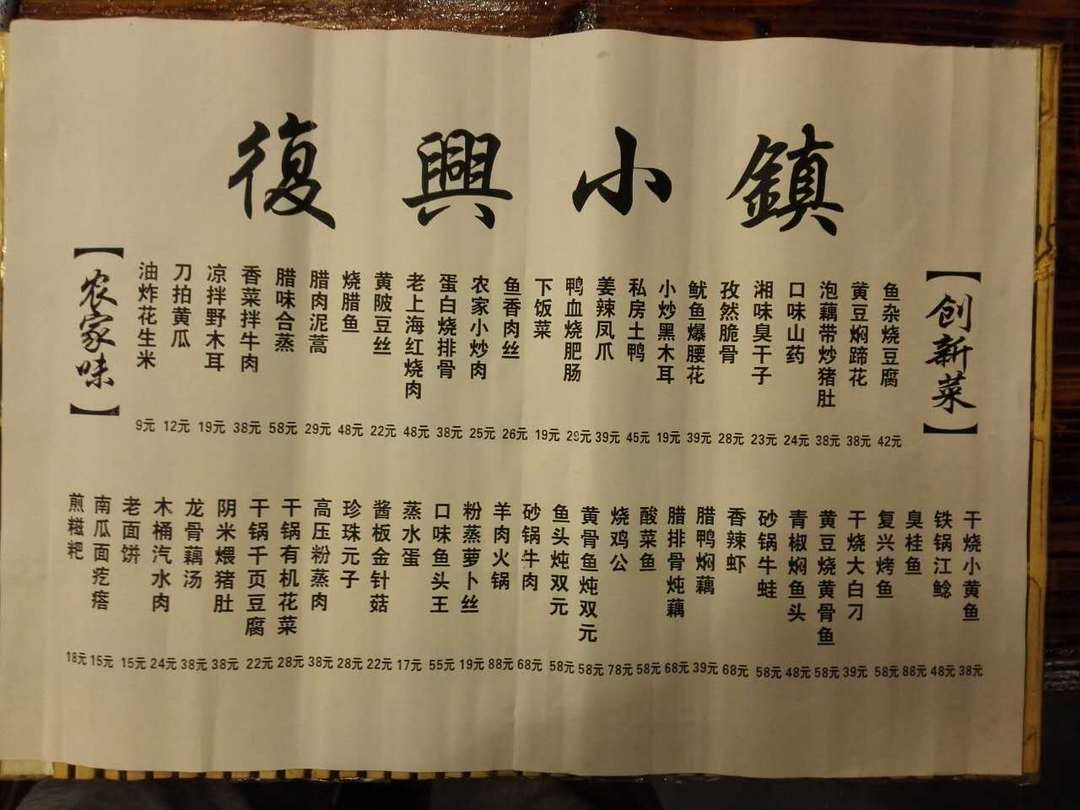 復興小鎮
【农家味】
油炸花生米 9元
刀拍黄瓜 12元
凉拌野木耳 19元
香菜拌牛肉 38元
腊味合蒸 58元
腊肉泥蒿 29元
烧腊鱼 48元
黄陂豆丝 22元
老上海红烧肉 48元
蛋白烧排骨 38元
农家小炒肉 25元
鱼香肉丝 26元
下饭菜 19元
鸭血烧肥肠 29元
姜辣凤爪 39元
私房土鸭 45元
小炒黑木耳 19元
鱿鱼爆腰花 39元
孜然脆骨 28元
湘味臭干子 23元
口味山药 24元
泡藕带炒猪肚 38元
黄豆焖蹄花 38元
鱼杂烧豆腐 42元
【创新菜】
煎糍粑 18元
南瓜面疙瘩 15元
老面饼 15元
木桶汽水肉 24元
龙骨藕汤 38元
阴米煨猪肚 38元
干锅千页豆腐 22元
干锅有机花菜 28元
高压粉蒸肉 38元
珍珠元子 28元
酱板金针菇 22元
蒸水蛋 17元
口味鱼头王 55元
粉蒸萝卜丝 19元
羊肉火锅 88元
砂锅牛肉 68元
鱼头炖双元 58元
黄骨鱼炖双元 58元
烧鸡公 78元
酸菜鱼 58元
腊排骨炖藕 68元
腊鸭焖藕 39元
香辣虾 68元
砂锅牛蛙 58元
青椒焖鱼头 48元
黄豆烧黄骨鱼 58元
干烧大白刁 39元
复兴烤鱼 58元
臭桂鱼 88元
铁锅江鲶 48元
干烧小黄鱼 38元